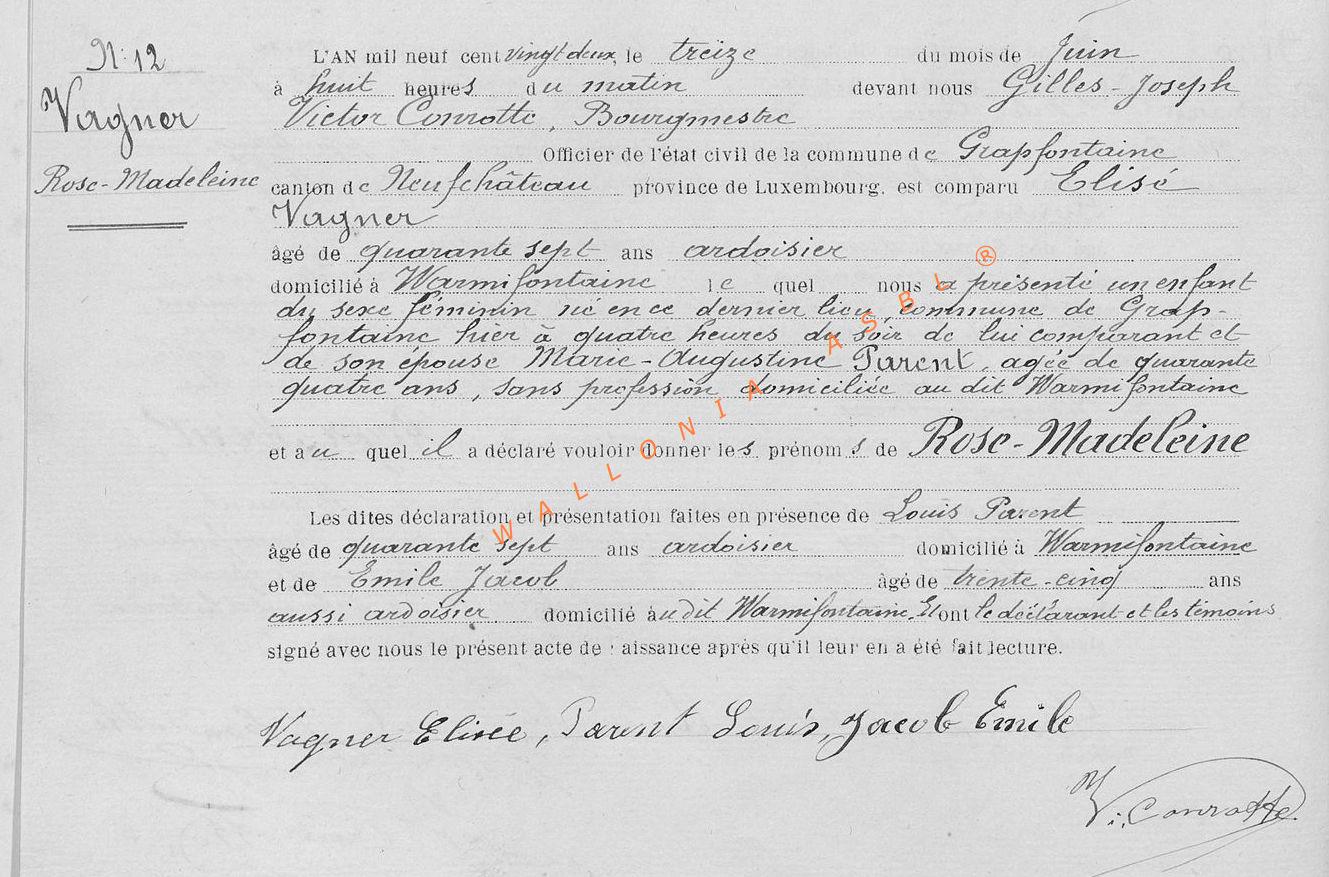 N: 12
Vagner
Rose-Madeleine
L'AN mil neuf cent vingt deux, le treize du mois de Juin
à huit heures du matin devant nous Gilles-Joseph
Victor Conrotte, Bourgmestre
Officier de l'état civil de la commune de Grapfontaine
canton de Neufchâteau province de Luxembourg, est comparu Elisé
Vagner
âgé de quarante sept ans ardoisier
domicilié à Warmifontaine le quel nous a présenté un enfant
du sexe féminin né en ce dernier lieu, commune de Grap-
fontaine hier à quatre heures du soir de lui comparant et
de son épouse Marie-Augustine Parent, agée de quarante
quatre ans, sans profession domiciliée au dit Warmifontaine
et au quel il a déclaré vouloir donner les prénoms de Rose-Madeleine
Les dites déclaration et présentation faites en présence de Louis Parent
âgé de quarante sept ans ardoisier domicilié à Warmifontaine
et de Emile Jacob âgé de trente-cinq ans
aussi ardoisier domicilié audit Warmifontaine. Et ont le déclarant et les témoins
signé avec nous le présent acte de naissance après qu'il leur en a été fait lecture.
Vagner Elisée, Parent Louis, Jacob Emile
V. Conrotte
WALLONIA ASBL ®